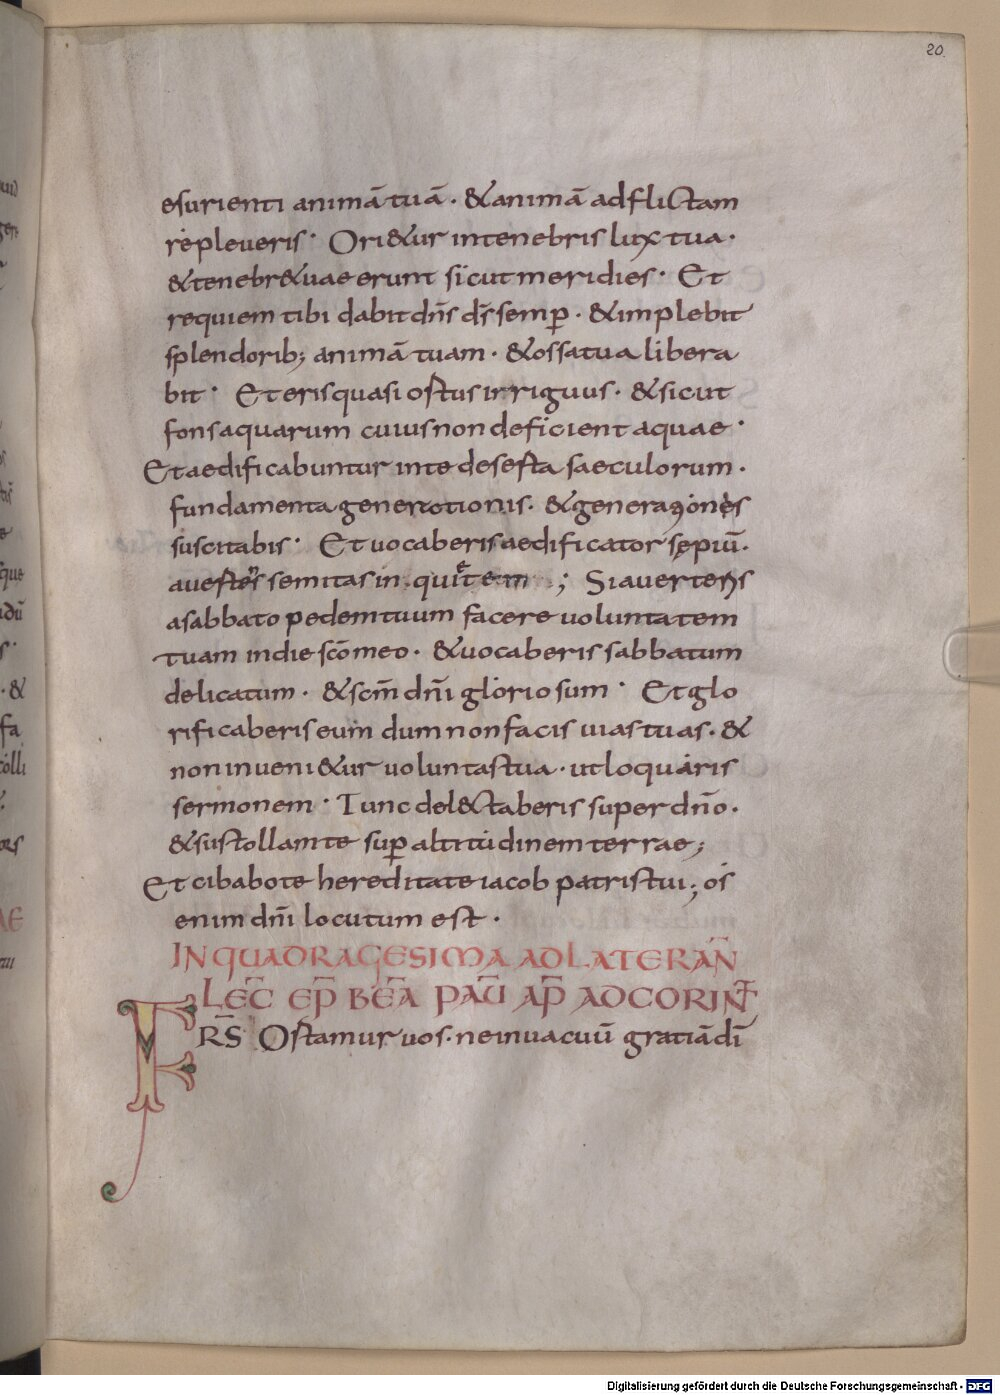 20
esurienti animā tuā · & animā adflictam
repleueris · Ori&ur in tenebris lux tua ·
& tenebr& uae erunt sicut meridies · Et
requiem tibi dabit dn̄s ds̄ semp̄ · & implebit
splendorib; animā tuam · & ossa tua libera
bit · Et eris quasi ortus irriguus · & sicut
fons aquarum cuius non deficient aquae ·
Et aedificabuntur in te deserta saeculorum ·
fundamenta generationis · & generationes
suscitabis · Et uocaberis aedificator sępiū ·
semitas in ; Si auerteris
a sabbato pedem tuum facere uoluntatem
tuam in die sc̄o meo · & uocaberis sabbatum
delicatum · & sc̄m dn̄i gloriosum · Et glo
rificaberis eum dum non facis uias tuas · &
non inueni&ur uoluntas tua · ut loquaris
sermonem · Tunc del&taberis super dn̄o ·
& sustollam te sup̄ altitudinem terrae ;
Et cibabo te hereditate iacob patris tui ; os
enim dn̄i locutum est ·
IN QUADRAGESIMA AD LATERAN̄
LEC̄ EP̄ BEĀ PAŪ AP̄ AD CORINT̄
FRS̄ Ortamur uos · ne in uacuū gratiā dī
Digitalisierung gefördert durch die Deutsche Forschungsgemeinschaft - DFG